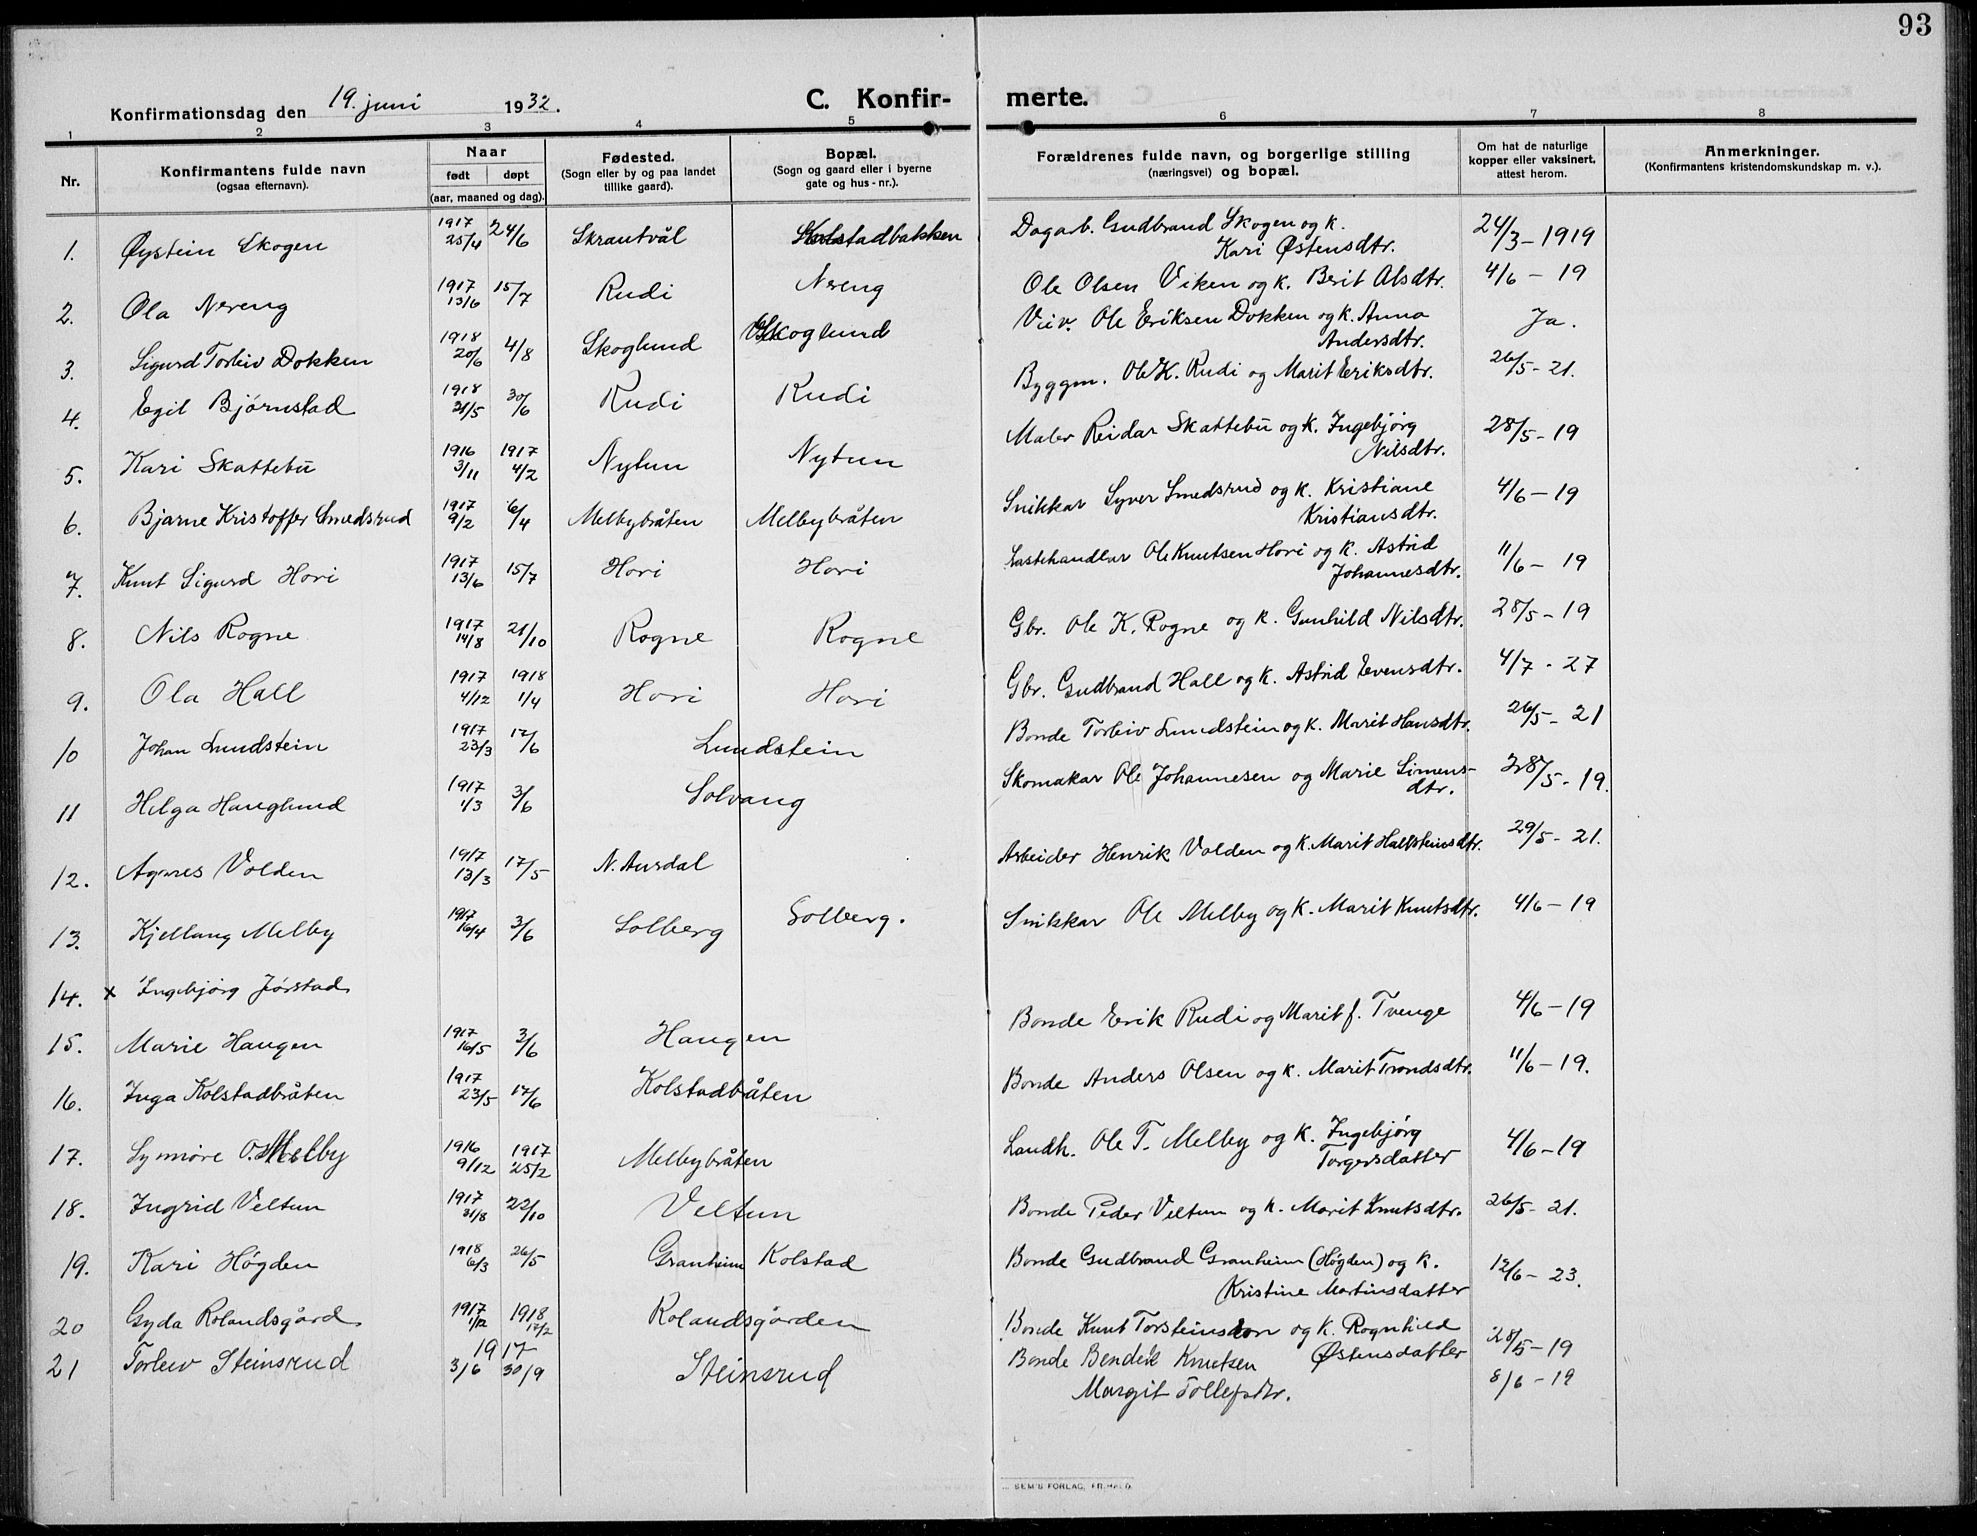 93
Konfirmationsdag den 19. juni 1932.
C. Konfir- merte.
1 2 3 4 5 6 7 8
Nr.
Konfirmantens fulde navn
(ogsaa efternavn).
Naar
født døpt
(aar, maaned og dag).
Fødested.
(Sogn eller by og paa landet
tillike gaard).
Bopæl.
(Sogn og gaard eller i byerne
gate og hus-nr.).
Forældrenes fulde navn, og borgerlige stilling
(næringsvei) og bopæl.
Om hat de naturlige
kopper eller vaksinert,
attest herom.
Anmerkninger.
(Konfirmantens kristendomskundskap m. v.).
1. Øystein Skogen 1917 25/4 24/6 Skrautvål Kolstadbakken Dagarb. Gudbrand Skogen og k.
Kari Østensdtr. 24/3-1919
2. Ola Nereng 1917 13/6 15/7 Rudi Nereng Ole Olsen Viken og k. Brit Alsdtr. 4/6 - 19
3. Sigurd Torleiv Dokken 1918 20/6 4/8 Skoglund Skoglund Ole Eriksen Dokken og k. Anna
Andersdtr. Ja.
4. Egil Bjørnstad 1918 31/5 30/6 Rudi Rudi Byggm. Ole K. Rudi og Marit Eriksdtr. 26/5-21.
5. Kari Skattebu 1916 3/11 1917 4/2 Nytun Nytun Maler Reidar Skattebu og k. Ingebjørg
Nilsdtr. 28/5-19
6. Bjarne Kristoffer Smedsrud 1917 9/2 6/4 Melbybråten Melbybråten Snikkar Syver Smedsrud og k. Kristiane
Kristiansdtr. 4/6-19
7. Knut Sigurd Hovi 1917 13/6 15/7 Hovi Hovi Hestehandlar Ole Knutsen Hovi og k. Astrid
Johannesdtr. 11/6- 19
8. Nils Rogne 1917 14/8 21/10 Rogne Rogne Gbr. Ole K. Rogne og k. Gunhild Nilsdtr. 28/5-19
9. Ola Hall 1917 4/12 1918 1/4 Hovi Hovi Gbr. Gudbrand Hall og k. Astrid Evensdtr. 4/7-27
10 Johan Lundstein 1917 23/3 17/6 Lundstein Bonde Torleiv Lundstein og k. Marit Hansdtr. 26/5-21
11 Helga Hauglund 1917 1/3 3/6 Solvang Skomakar Ole Johannesen og Marie Simens-
dtr. 28/5-19.
12. Agnes Volden 1917 13/3 17/5 N. Aurdal Arbeider Henrik Volden og k. Marit Hallsteinsdtr. 29/5-21.
13. Kjellaug Melby 1917 16/4 3/6 Solberg Solberg. Snikkar Ole Melby og k. Marit Knutsdtr. 4/6-19
14. x Ingebjørg Jørstad
15. Marie Haugen 1917 16/5 3/6 Haugen Bonde Erik Rudi og Marit f. Tvenge 4/6-19
16. Inga Kolstadbråten 1917 23/5 17/6 Kolstadbråten Bonde Anders Olsen og k. Marit Trondsdtr. 11/6-19.
17. Synnøve O. Melby 1916 9/12 1917 25/2 Melbybråten Landh. Ole T. Melby og k. Ingebjørg
Torgersdatter 4/6-19
18. Ingrid Veltun 1917 31/8 22/10 Veltun Bonde Peder Veltun og k. Marit Knutsdtr. 26/5-21.
19. Kari Høgden 1918 6/3 26/5 Granheim Kolstad Bonde Gudbrand Granheim (Høgden) og k.
Kristine Martinsdatter 12/6-23.
20 Gyda Rolandsgård 1917 1/12 1918 17/2 Rolandsgården Bonde Knut Torsteinson og k. Rognhild
Østensdatter 28/5-19
21 Torleiv Steinsrud 1917 3/6 30/9 Steinsrud Bonde Bendik Knutsen
Margit Tollefsdtr. 8/6-19
SEM'S FORLAG, FR.HALD.